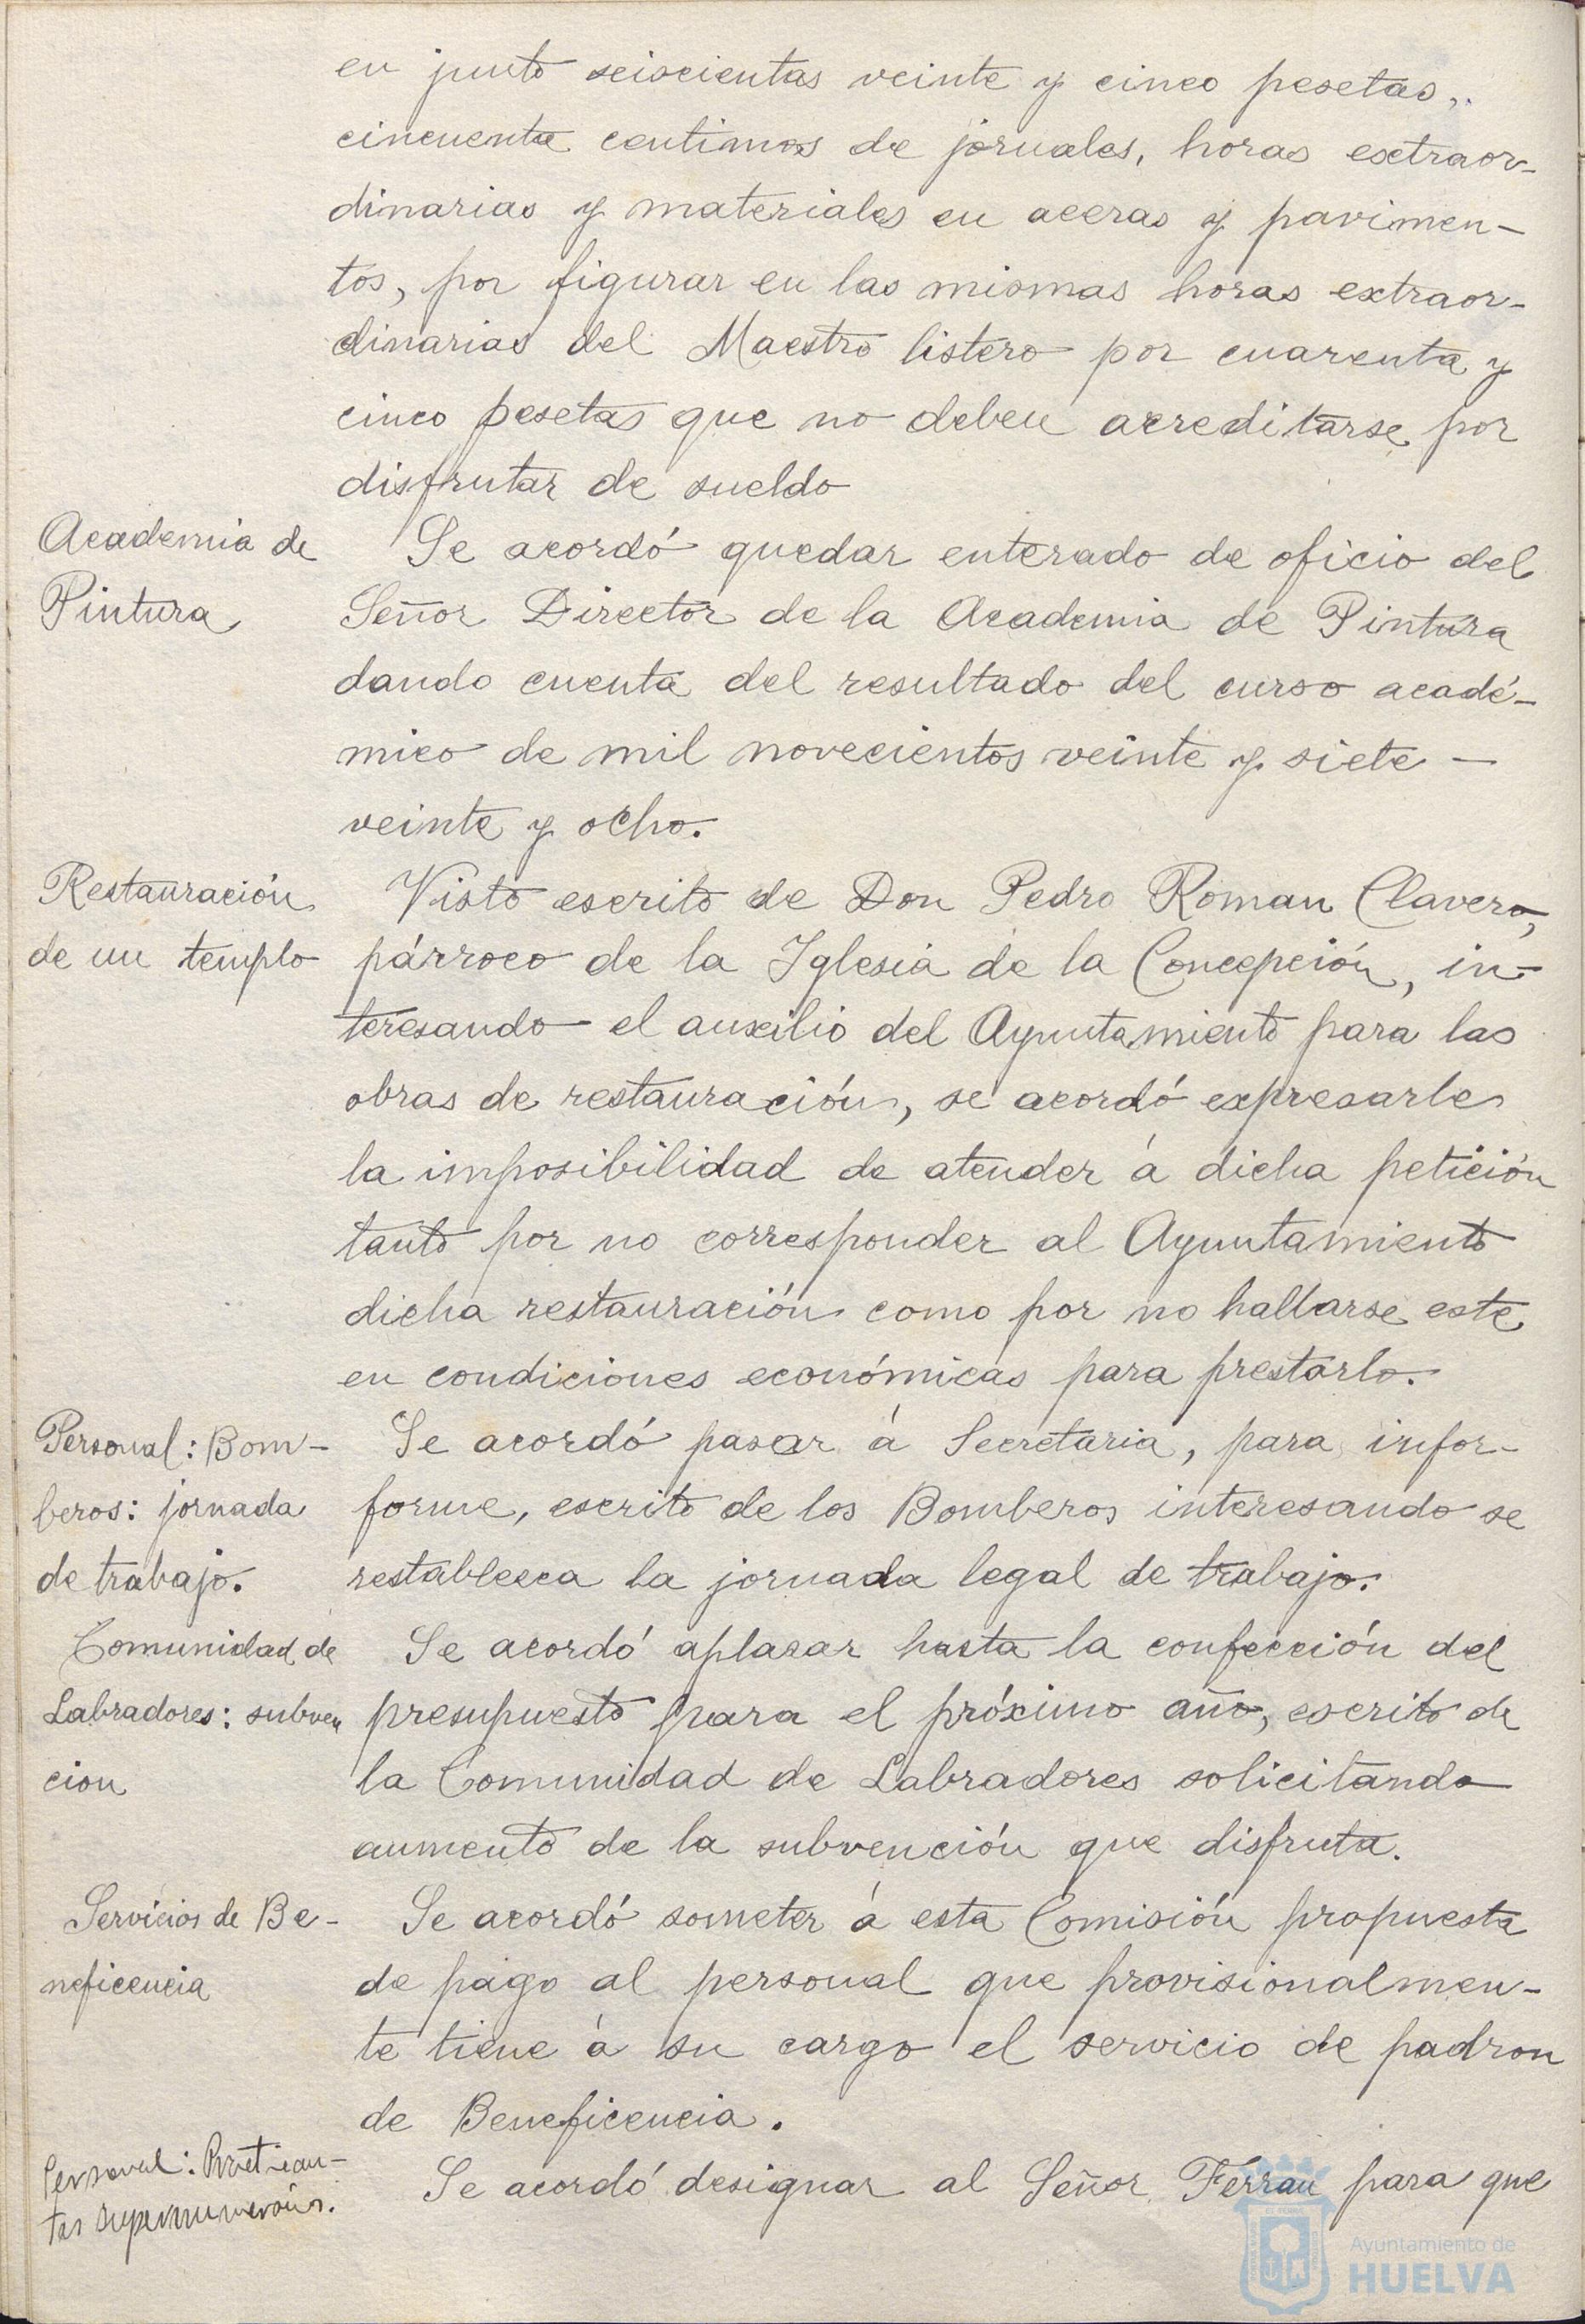 en junto seiscientas veinte y cinco pesetas,
cincuenta centimos de jornales, horas extraor-
dinarias y materiales en aceras y pavimen-
tos, por figurar en las mismas horas extraor-
dinarias del Maestro listero por cuarenta y
cinco pesetas que no deben acreditarse por
disfrutar de sueldo
Academia de
Pintura
Se acordó quedar enterado de oficio del
Señor Director de la Academia de Pintura
dando cuenta del resultado del curso acadé-
mico de mil novecientos veinte y siete —
veinte y ocho.
Restauración
de un templo
Visto escrito de Don Pedro Roman Clavero,
párroco de la Iglesia de la Concepción, in-
teresando el auxilio del Ayuntamiento para las
obras de restauración, se acordó expresarle
la imposibilidad de atender á dicha petición
tanto por no corresponder al Ayuntamiento
dicha restauración como por no hallarse este
en condiciones económicas para prestarlo.
Personal: Bom-
beros: jornada
de trabajo.
Se acordó pasar á Secretaria, para infor-
forme, escrito de los Bomberos interesando se
restablezca la jornada legal de trabajo.
Comunidad de
Labradores: subven
cion
Se acordó aplazar hasta la confección del
presupuesto para el próximo año, escrito de
la Comunidad de Labradores solicitando
aumento de la subvención que disfruta.
Servicios de Be-
neficencia
Se acordó someter á esta Comisión propuesta
de pago al personal que provisionalmen-
te tiene á su cargo el servicio de padron
de Beneficencia.
Personal: Practican-
tes supernumerarios.
Se acordó designar al Señor Ferrau para que
Ayuntamiento de
HUELVA